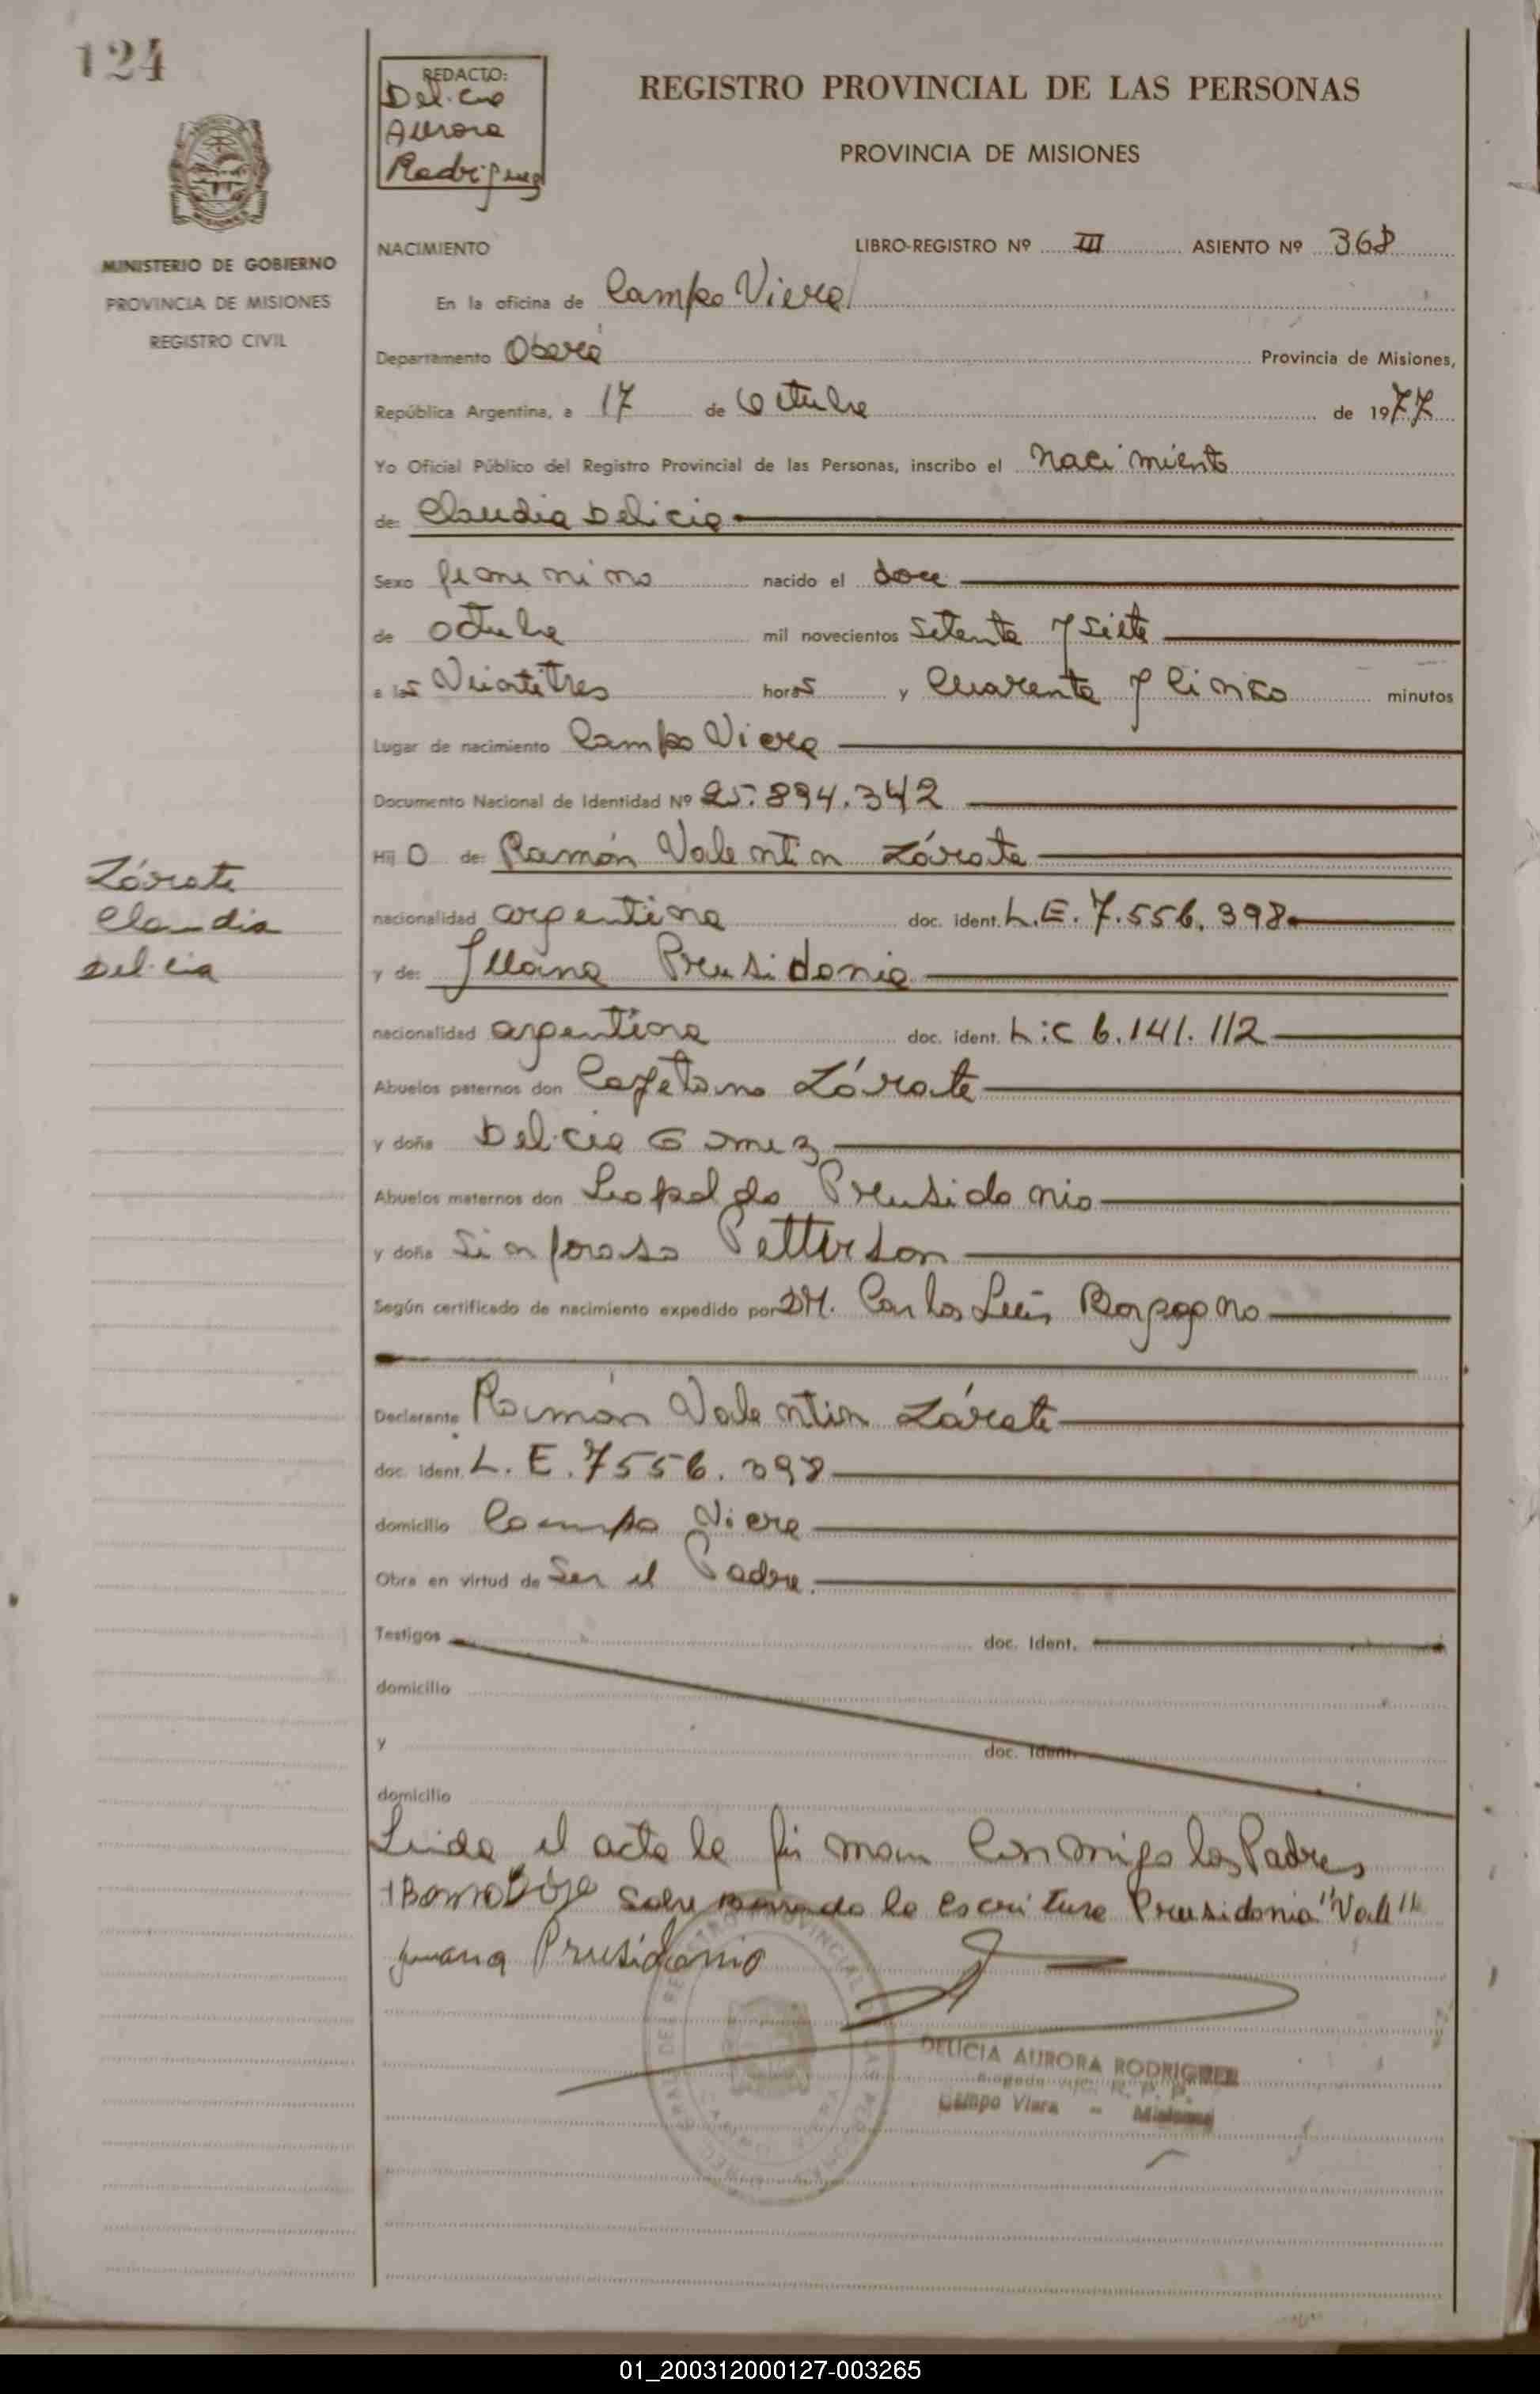 124
REDACTO:
Delicia
Aurora
Rodriguez
REGISTRO PROVINCIAL DE LAS PERSONAS
PROVINCIA DE MISIONES
MINISTERIO DE GOBIERNO
PROVINCIA DE MISIONES
REGISTRO CIVIL
NACIMIENTO LIBRO-REGISTRO Nº III ASIENTO Nº 368
En la oficina de Campo Viera
Departamento Oberá Provincia de Misiones,
República Argentina, a 17 de Octubre de 1977
Yo Oficial Público del Registro Provincial de las Personas, inscribo el nacimiento
de: Claudia Delicia
Sexo femenino nacido el doce
de octubre mil novecientos setenta y siete
a las Veintitres horas y Cuarenta y Cinco minutos
Lugar de nacimiento Campo Viera
Documento Nacional de Identidad Nº 25.894.342
Hij O de: Ramón Valentin Zárate
Zárate
Claudia
Delicia
nacionalidad argentina doc. ident. L.E. 7.556.398
y de: Juana Preusidonia
nacionalidad argentina doc. ident. L.C 6.141.112
Abuelos paternos don Cayetano Zárate
y doña Delicia Gomez
Abuelos maternos don Leopoldo Preusidonio
y doña Sinforosa Petterson
Según certificado de nacimiento expedido por DR. Carlos Luis
Declarante Ramón Valentin Zárate
doc. ident. L.E. 7556.398
domicilio Campo Viera
Obra en virtud de Ser el Padre.
Testigos doc. Ident.
domicilio
y doc. Ident.
domicilio
Leida el acta la firman Conmigo los Padres
Sobre la escritura Preusidonia "Vale"
Juana Prusidonio
DELICIA AURORA RODRIGUEZ
R. P. P.
Campo Viera - Misiones
01_200312000127-003265